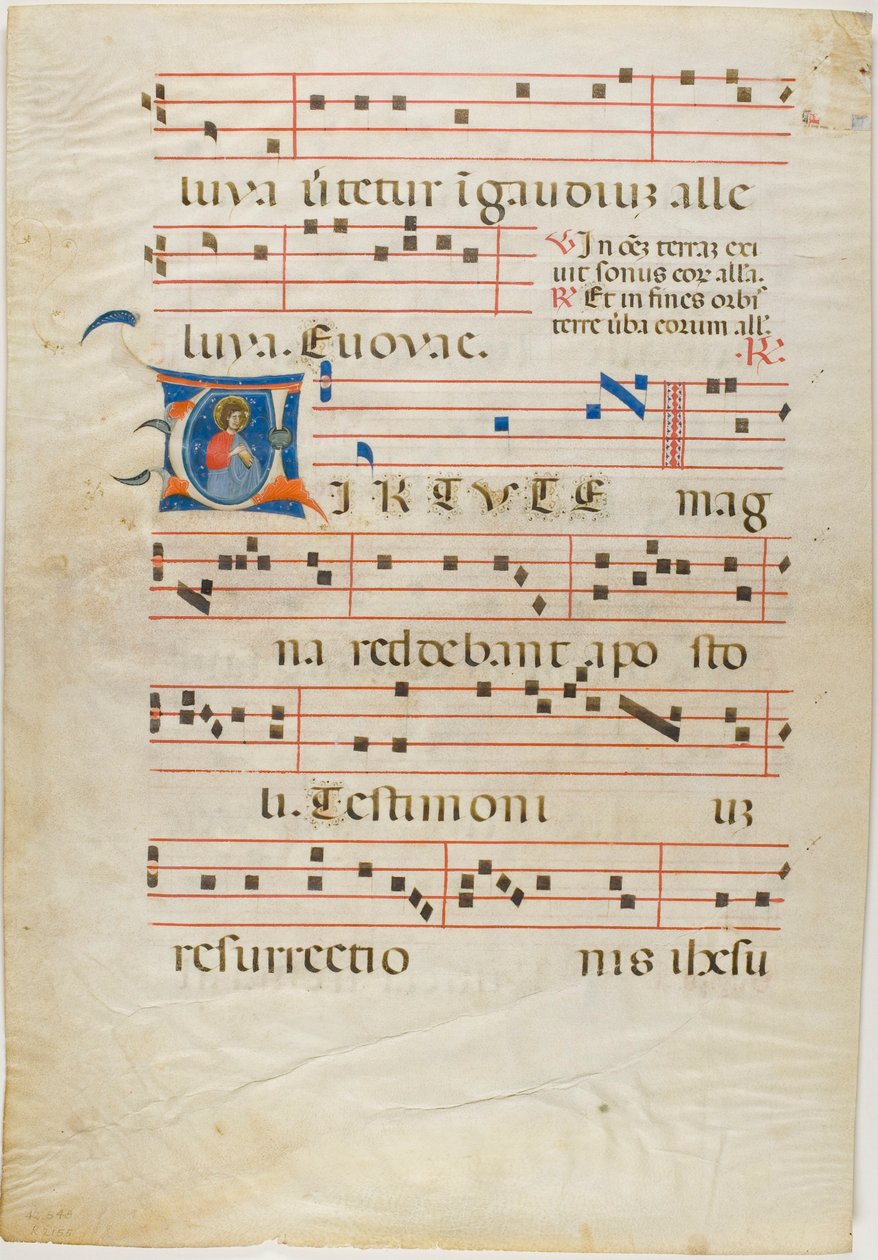 luya ūtetur ī gaudiuꝫ alle
luya. Euovae.
℣ In oēꝫ terraꝫ exi
uit sonus eoꝝ all'a.
℟ Et in fines orbis
terre ūba eorum all'.
℟.
VIRTVTE mag
na reddebant aposto
li. Testimoni uꝫ
resurrectio nis ihesu
42.548
R2155